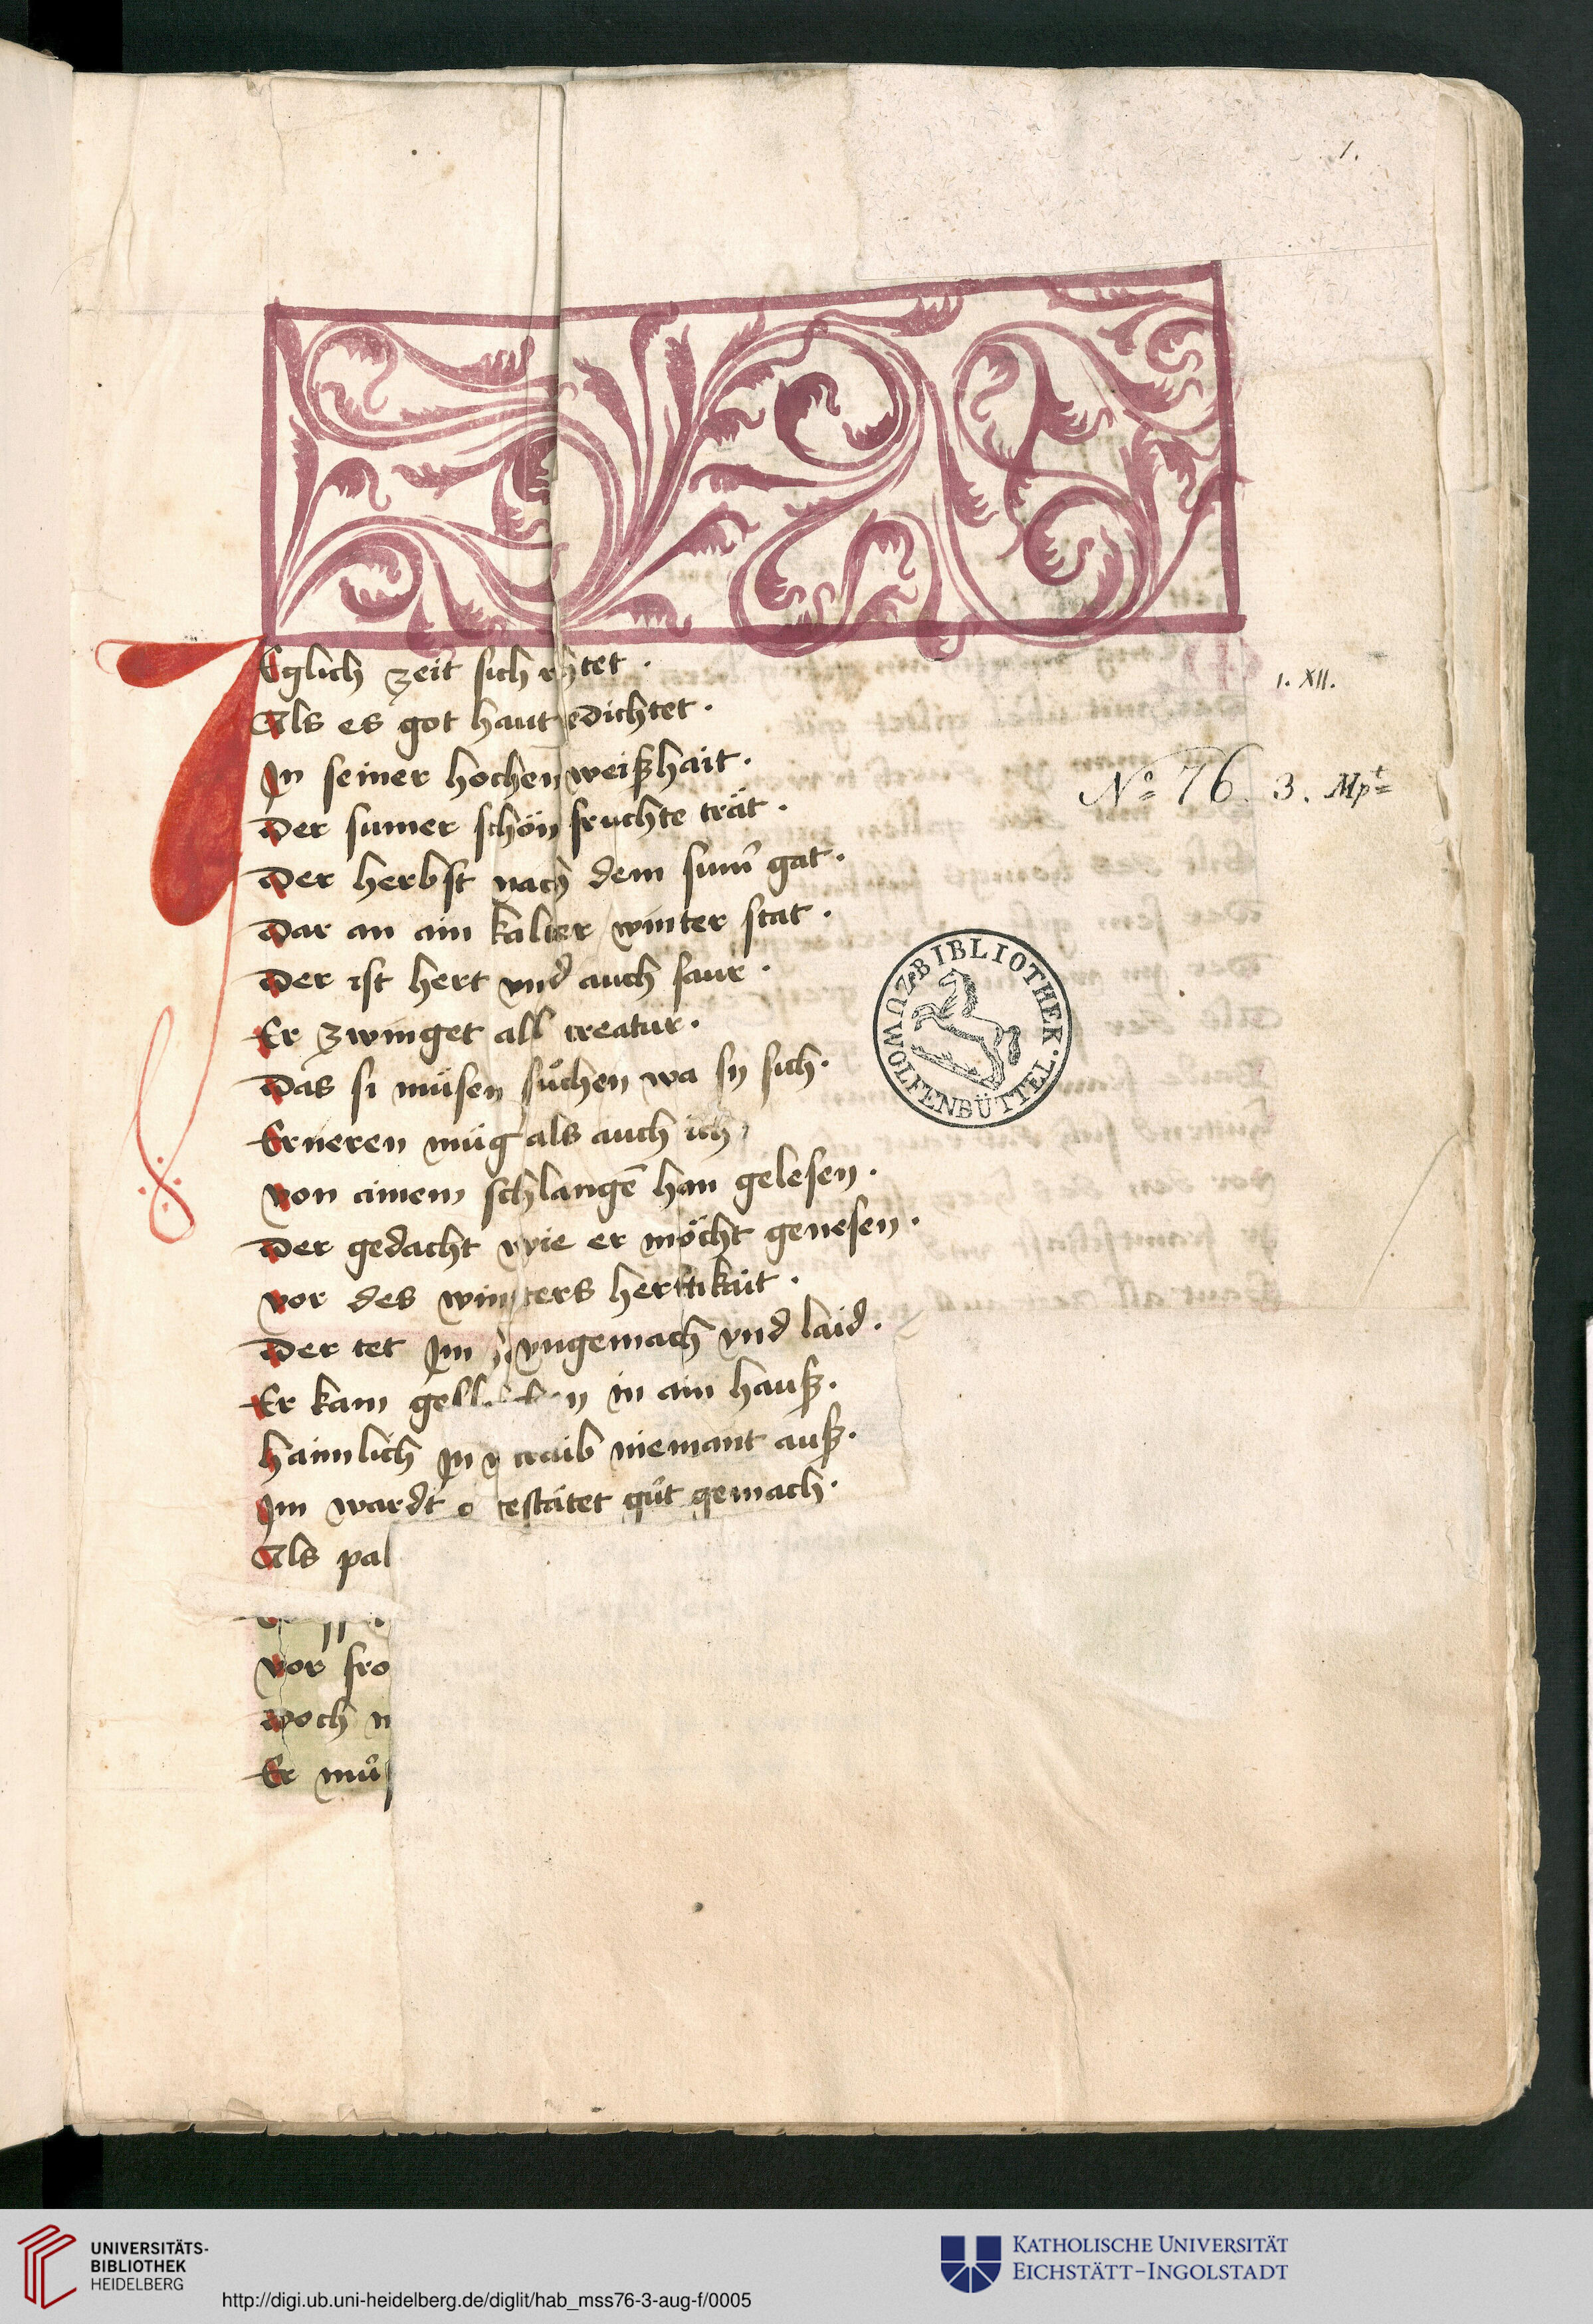 1.
Eglich zeit sich rytet ·
Als es got haut edichtet ·
In seiner hochen weißhait ·
Der sumer schön fruchte trät ·
Der herbst nach dem sum̄ gat ·
Dar an ain kalter winter stat ·
Der ist hert vnd auch saur ·
Er zwinget all creatur ·
Das si müsen sůchen wa sy sich ·
Erneren müg als auch ich
von ainem schlangē han gelesen ·
Der gedacht wie er möcht genesen ·
vor des winters herttikait ·
Der tet Im vngemach vnd laid ·
Er kam in ain hauß ·
haimlich In traib niemant auß ·
Im wardt estätet gůt gemach ·
Als pal
vor fro
Noch n
Er můs
1. XII.
Nº 76. 3. Mpt
WOLFENBÜTTEL · BIBLIOTHEK
UNIVERSITÄTS-
BIBLIOTHEK
HEIDELBERG
http://digi.ub.uni-heidelberg.de/diglit/hab_mss76-3-aug-f/0005
KATHOLISCHE UNIVERSITÄT
EICHSTÄTT-INGOLSTADT